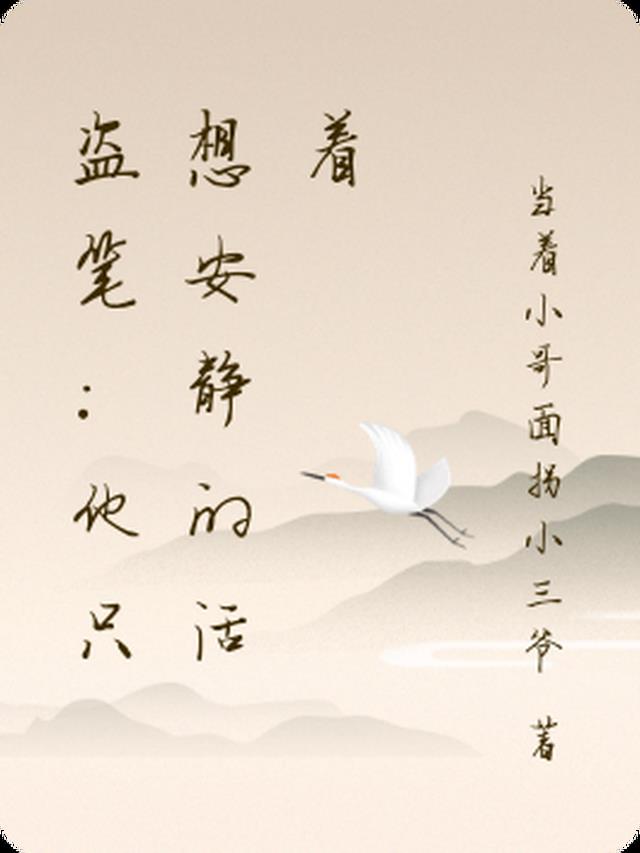 盗笔：他只
想安静的活
着
当着小哥面拐小三爷 著